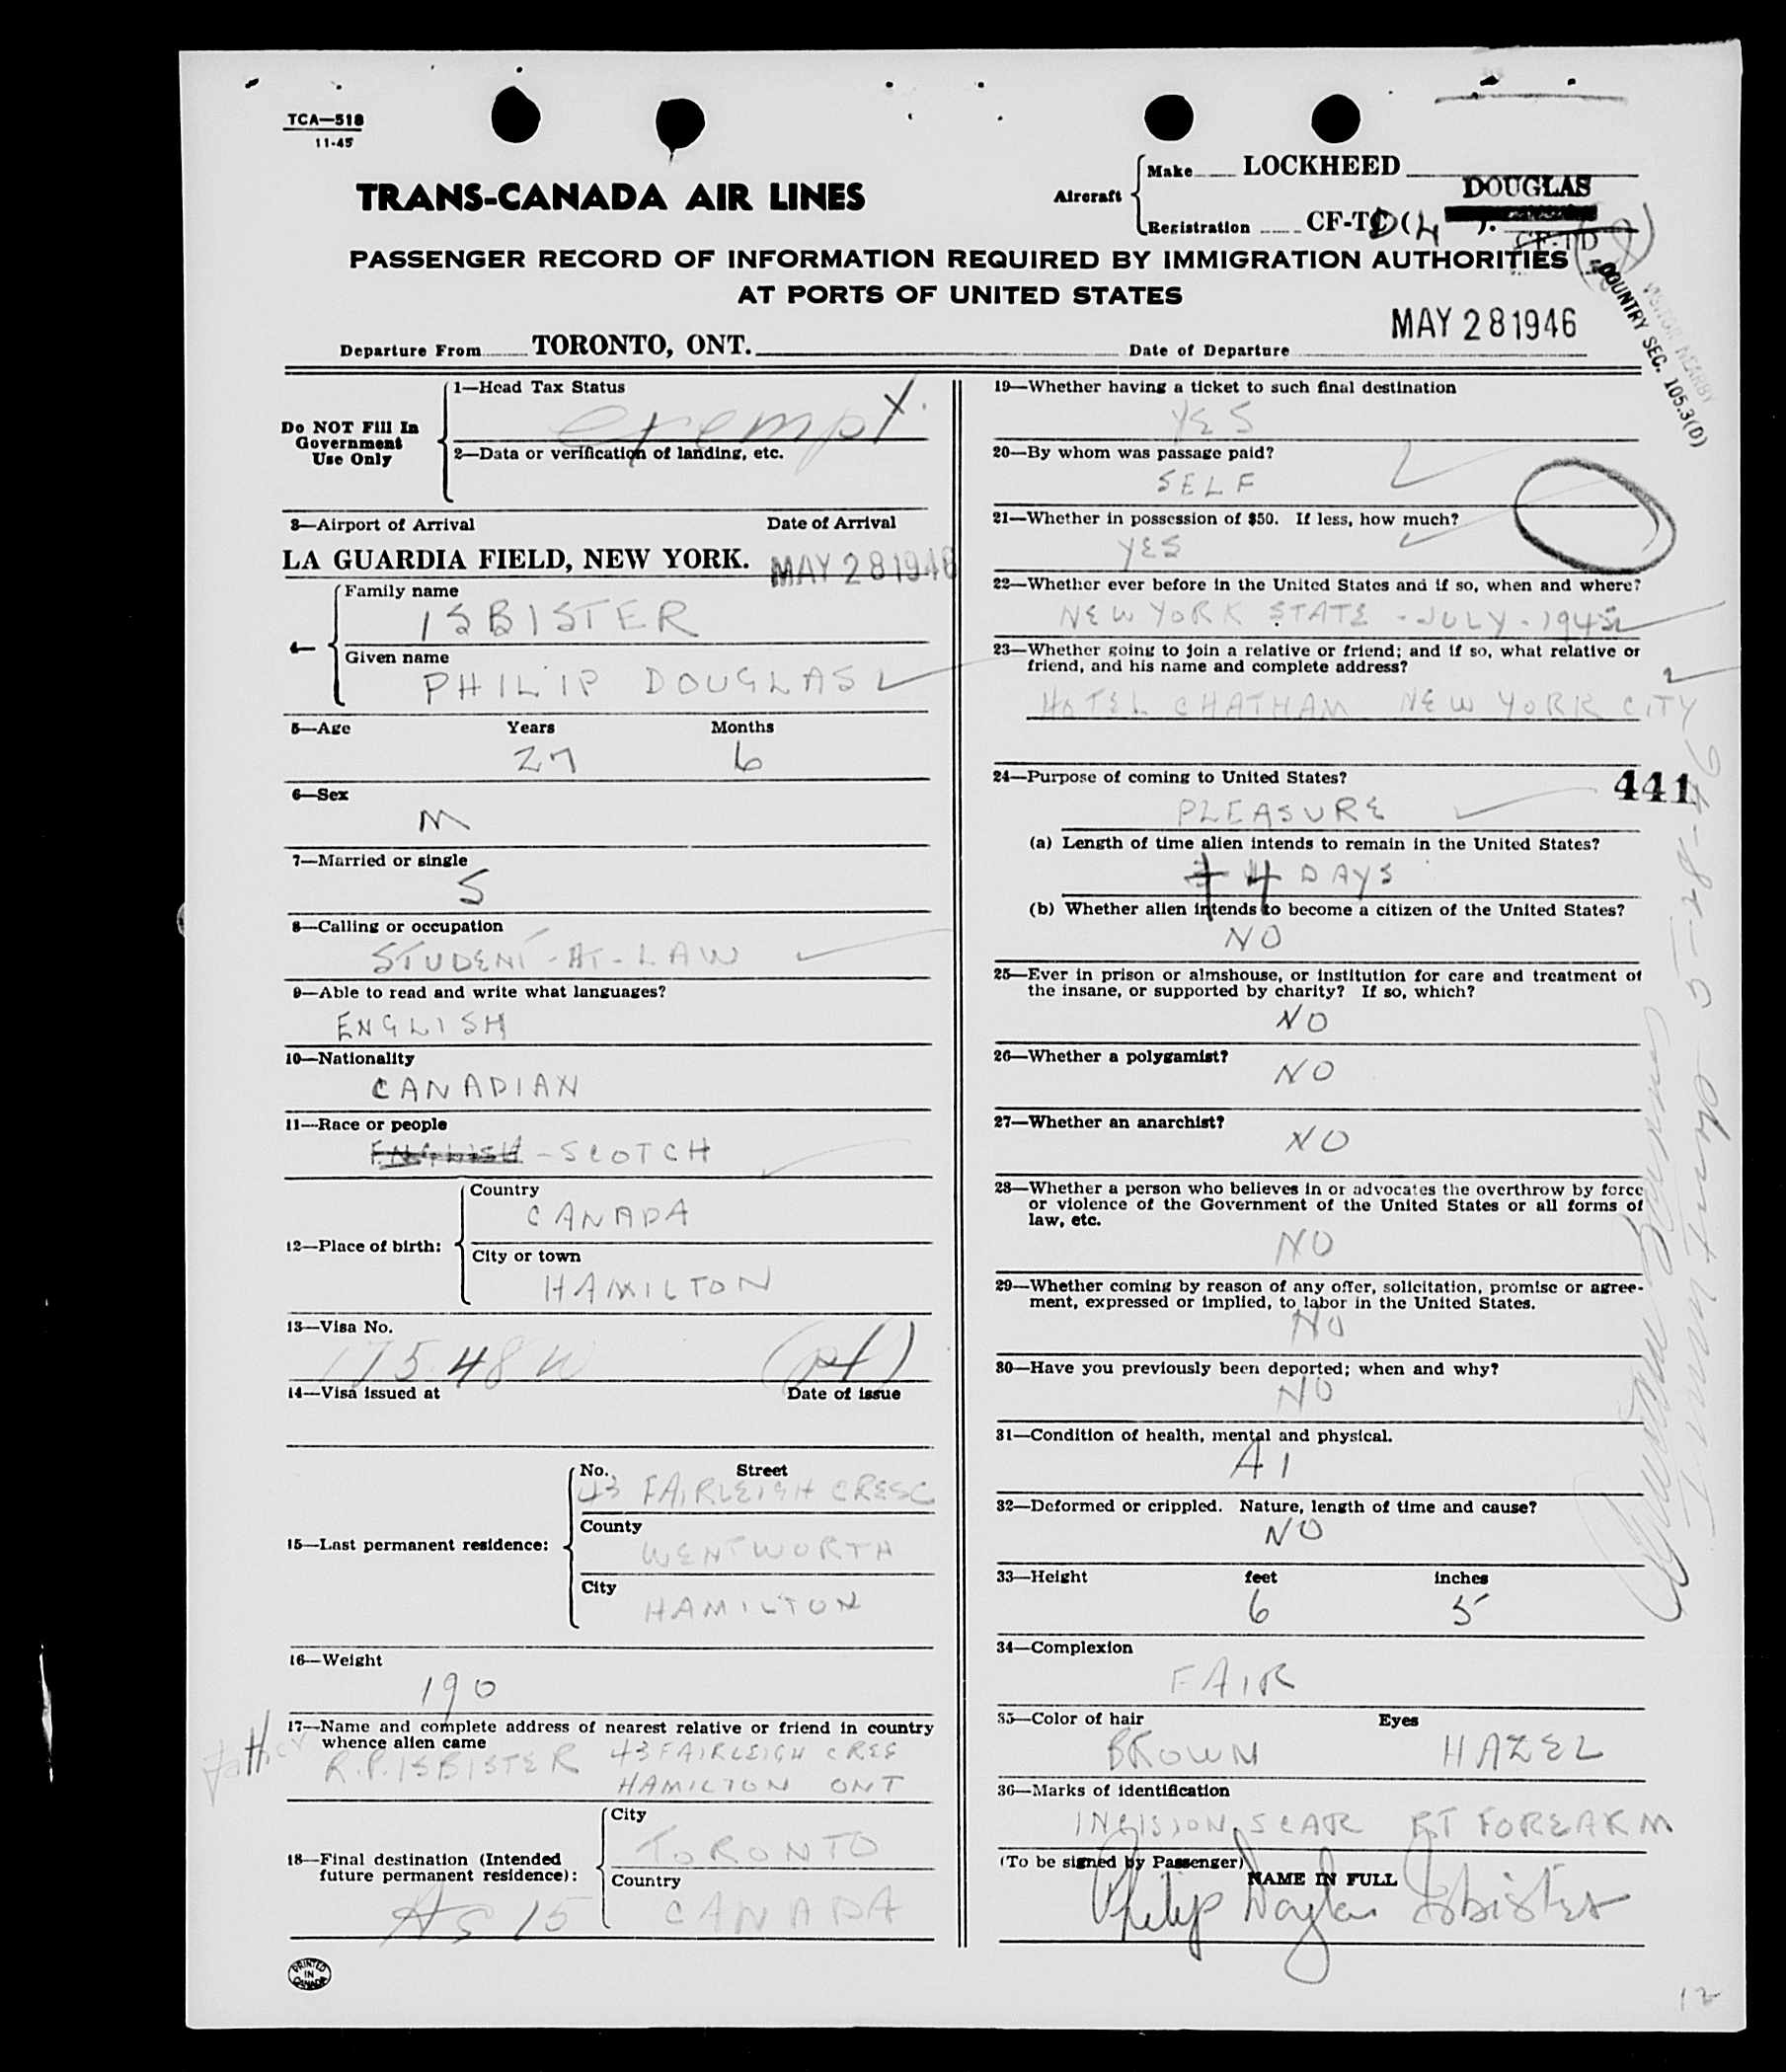 TCA—518
11-45
TRANS-CANADA AIR LINES
Aircraft
Make LOCKHEED
DOUGLAS
Registration CF-TC ( 4 ).
CF-TD
PASSENGER RECORD OF INFORMATION REQUIRED BY IMMIGRATION AUTHORITIES
AT PORTS OF UNITED STATES
COUNTRY SEC. 105.3(D)
Departure From TORONTO, ONT.
Date of Departure MAY 28 1946
Do NOT Fill In
Government
Use Only
1—Head Tax Status
exempt
2—Data or verification of landing, etc.
3—Airport of Arrival Date of Arrival
LA GUARDIA FIELD, NEW YORK. MAY 28 1946
4—
Family name
ISBISTER
Given name
PHILIP DOUGLAS
5—Age Years Months
27 6
6—Sex
M
7—Married or single
S
8—Calling or occupation
STUDENT-AT-LAW
9—Able to read and write what languages?
ENGLISH
10—Nationality
CANADIAN
11—Race or people
ENGLISH - SCOTCH
12—Place of birth:
Country
CANADA
City or town
HAMILTON
13—Visa No.
17548
14—Visa issued at Date of issue
15—Last permanent residence:
No. Street
43 FAIRLEIGH CRESC
County
WENTWORTH
City
HAMILTON
16—Weight
190
17—Name and complete address of nearest relative or friend in country
whence alien came
father R.P. ISBISTER 43 FAIRLEIGH CRES
HAMILTON ONT
18—Final destination (Intended
future permanent residence):
As 15
City
TORONTO
Country
CANADA
19—Whether having a ticket to such final destination
YES
20—By whom was passage paid?
SELF
21—Whether in possession of $50. If less, how much?
YES
22—Whether ever before in the United States and if so, when and where?
NEW YORK STATE - JULY -
23—Whether going to join a relative or friend; and if so, what relative or
friend, and his name and complete address?
HOTEL CHATHAM NEW YORK CITY
24—Purpose of coming to United States?
441
PLEASURE
(a) Length of time alien intends to remain in the United States?
4 DAYS
(b) Whether alien intends to become a citizen of the United States?
NO
25—Ever in prison or almshouse, or institution for care and treatment of
the insane, or supported by charity? If so, which?
NO
26—Whether a polygamist?
NO
27—Whether an anarchist?
NO
28—Whether a person who believes in or advocates the overthrow by force
or violence of the Government of the United States or all forms of
law, etc.
NO
29—Whether coming by reason of any offer, solicitation, promise or agree-
ment, expressed or implied, to labor in the United States.
NO
30—Have you previously been deported; when and why?
NO
31—Condition of health, mental and physical.
A1
32—Deformed or crippled. Nature, length of time and cause?
NO
33—Height feet inches
6 5
34—Complexion
FAIR
35—Color of hair Eyes
BROWN HAZEL
36—Marks of identification
INCISION SCAR RT FOREARM
(To be signed by Passenger)
NAME IN FULL
Philip Douglas Isbister
PRINTED
IN
CANADA
12